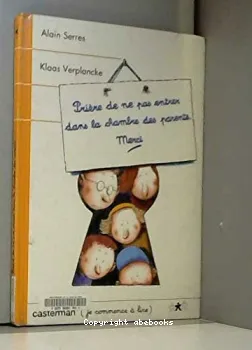 Alain Serres
Klaas Verplancke
Prière de ne pas entrer
dans la chambre des parents.
Merci
casterman (je commence à lire)
Copyright abebooks